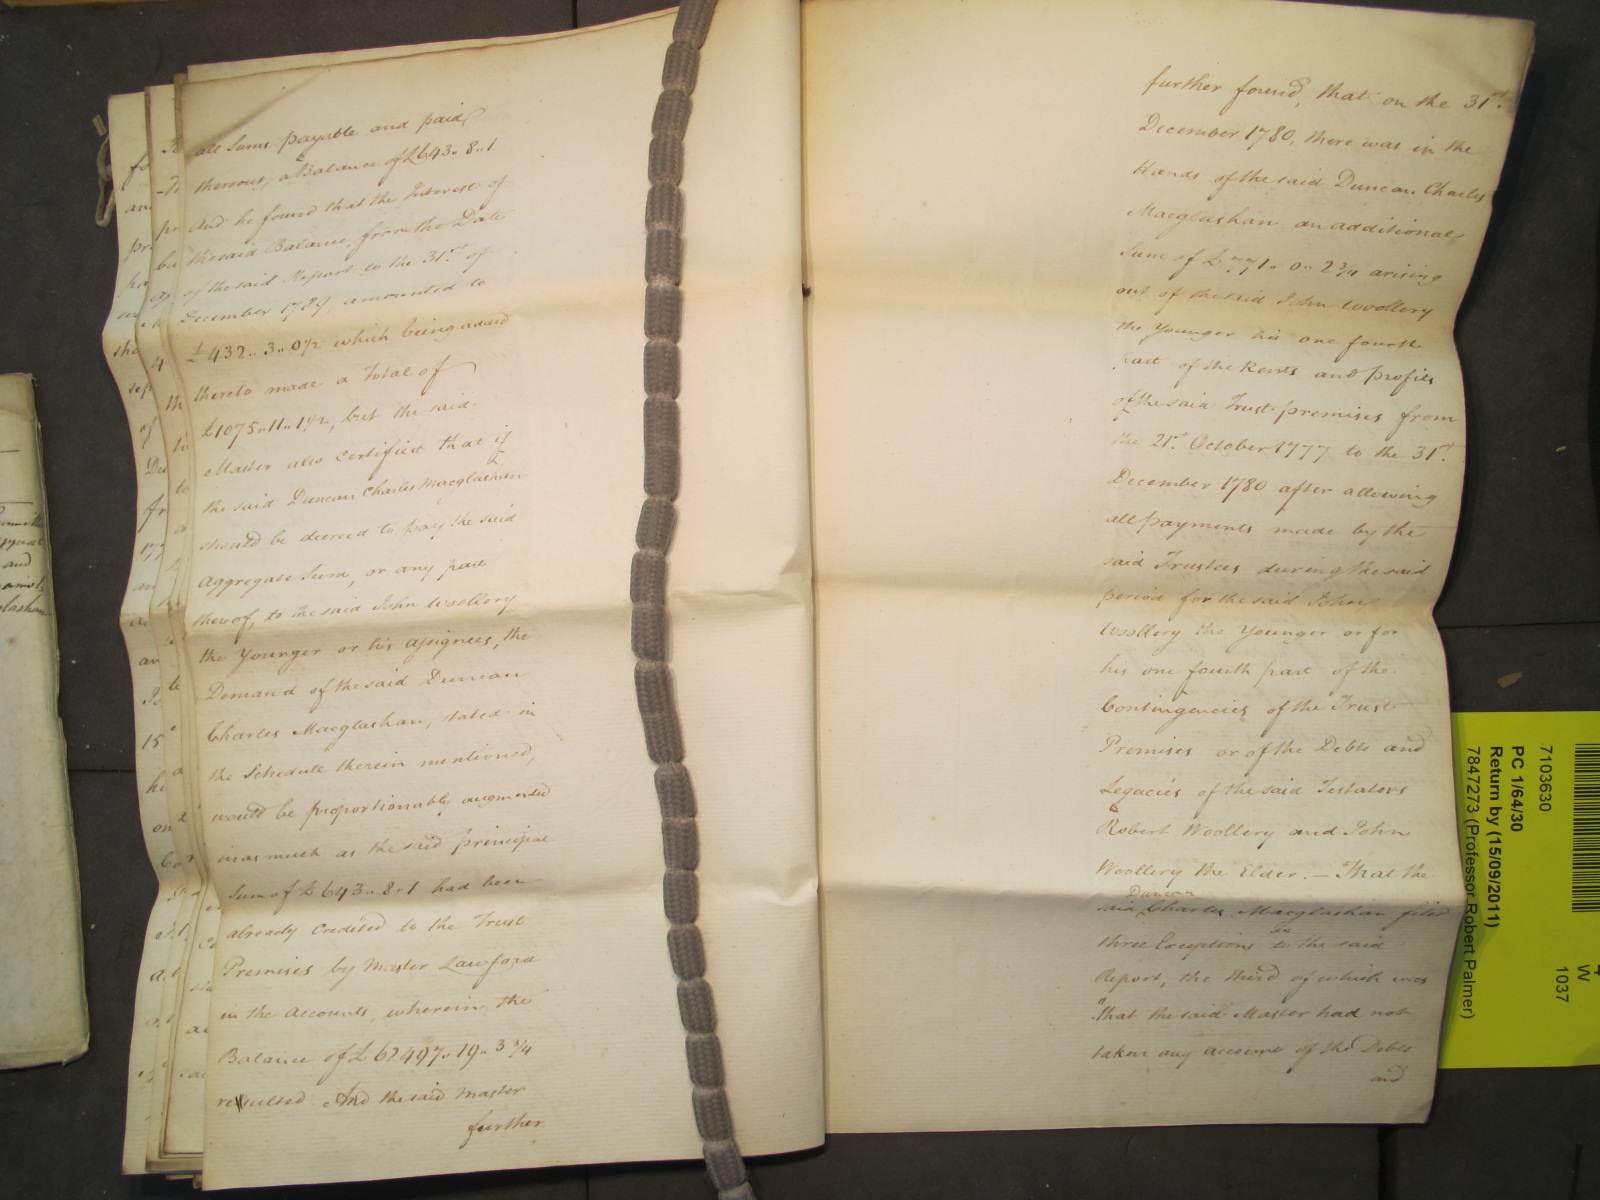 all Sums payable and paid
thereout, a Balance of £643.. 8.. 1
And he found that the Interest of
the said Balance, from the Date
of the said Report to the 31st of
December 1789, amounted to
£432.. 3.. 0½ which being added
thereto made a Total of
£1075.. 11.. 1½, but the said
Master also certified that if
the said Duncan Charles Macglashan
should be decreed to pay the said
Aggregate Sum, or any part
thereof, to the said John Woollery
the Younger or his assignees, the
Demand of the said Duncan
Charles Macglashan, stated in
the Schedule therein mentioned,
would be proportionably augmented
inasmuch as the said principal
Sum of £643.. 8.. 1 had been
already Credited to the Trust
Premises by Master Lawford
in the Accounts, wherein the
Balance of £62497.. 19.. 3¾
resulted. And the said Master
further
further found, that on the 31st
December 1780, there was in the
Hands of the said Duncan Charles
Macglashan an additional
Sum of £771.. 0.. 2¾ arising
out of the said John Woollery
the Younger his one fourth
part of the Rents and profits
of the said Trust premises from
the 21st October 1777 to the 31st
December 1780 after allowing
all payments made by the
said Trustees during the said
period for the said John
Woollery the Younger or for
his one fourth part of the
Contingencies of the Trust
Premises or of the Debts and
Legacies of the said Testators
Robert Woollery and John
Woollery the Elder. — That the
Duncan
said Charles Macglashan filed
three Exceptions to the said
Report, the third of which was
"That the said Master had not
taken any account of the Debts
and
7103630
PC 1/64/30
Return by (15/09/2011)
7847273 (Professor Robert Palmer)
W
1037